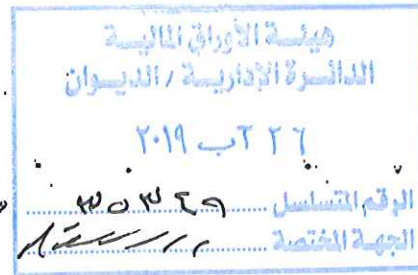 هيئة الأوراق المالية
الدائرة الإدارية / الديوان
٢٦ آب ٢٠١٩
الرقم المتسلسل ٣٥٣٤٩
الجهة المختصة